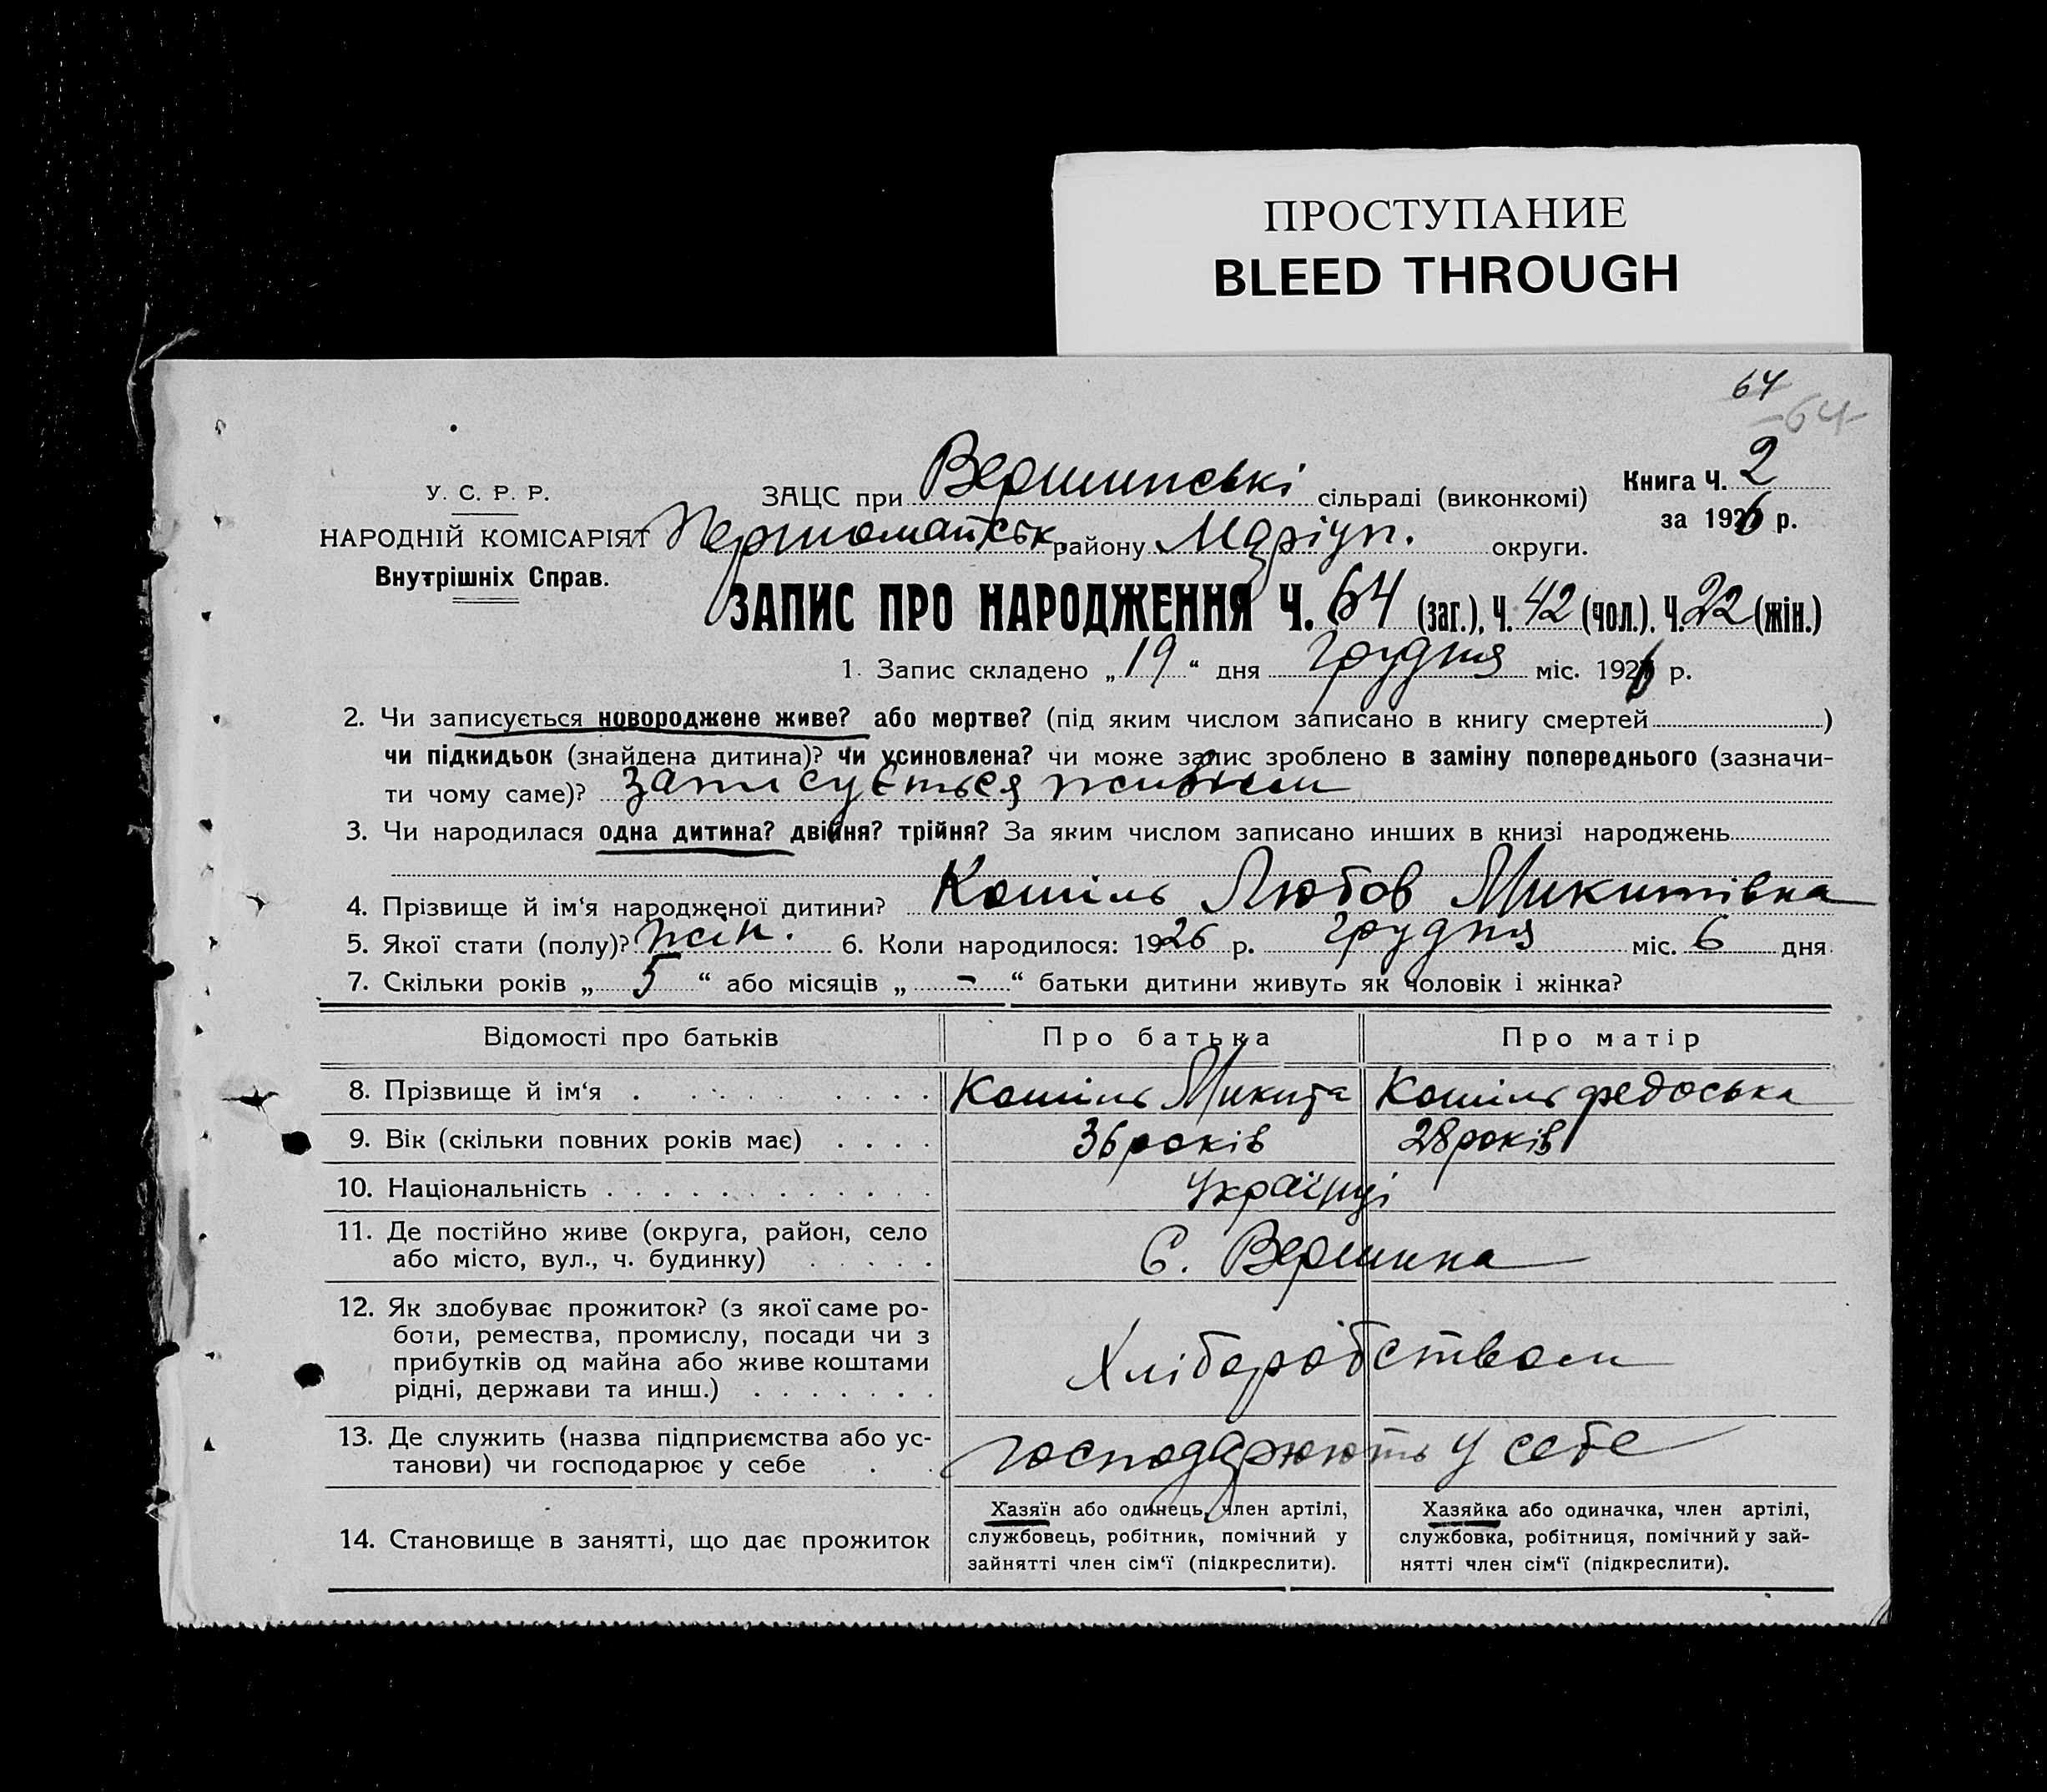 ПРОСТУПАНИЕ
BLEED THROUGH
64
64
У. С. Р. Р.
НАРОДНІЙ КОМІСАРІЯТ
Внутрішніх Справ.
ЗАЦС при Вершинські сільраді (виконкомі)
Книга Ч. 2
за 1926 р.
Первомайськ. району Маріуп. округи.
ЗАПИС ПРО НАРОДЖЕННЯ Ч. 64 (заг.), Ч. 42 (чол.). Ч. 22 (жін.)
1. Запис складено „ 19 “ дня грудня міс. 1926 р.
2. Чи записується новороджене живе? або мертве? (під яким числом записано в книгу смертей )
чи підкидьок (знайдена дитина)? Чи усиновлена? чи може запис зроблено в заміну попереднього (зазначи-
ти чому саме)? записується живим
3. Чи народилася одна дитина? двійня? трійня? За яким числом записано инших в книзі народжень
4. Прізвище й ім‘я народженої дитини? Кошіль Любов Микитівна
5. Якої стати (полу)? жін. 6. Коли народилося: 1926 р. грудня міс. 6 дня
7. Скільки років „ 5 “ або місяців „ - “ батьки дитини живуть як чоловік і жінка?
Відомості про батьків Про батька Про матір
8. Прізвище й ім‘я Кошіль Микита Кошіль Федоська
9. Вік (скільки повних років має) 36 років 28 років
10. Національність Українці
11. Де постійно живе (округа, район, село
або місто, вул., ч. будинку) С. Вершина
12. Як здобуває прожиток? (з якої саме ро-
боти, ремества, промислу, посади чи з
прибутків од майна або живе коштами
рідні, держави та инш.) Хліборобством
13. Де служить (назва підприємства або ус-
танови) чи господарює у себе господарюють у себе
14. Становище в занятті, що дає прожиток
Хазяїн або одинець, член артілі,
службовець, робітник, помічний у
зайнятті член сім‘ї (підкреслити).
Хазяйка або одиначка, член артілі,
службовка, робітниця, помічний у зай-
нятті член сім‘ї (підкреслити).